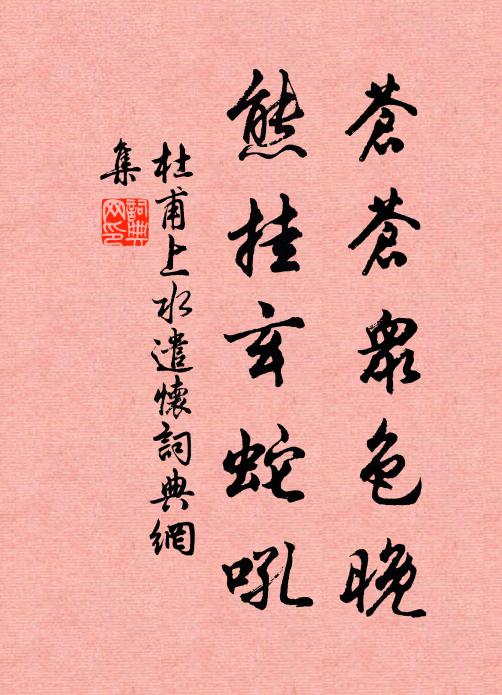 蒼蒼眾色晚
熊挂玄蛇吼
杜甫上水遣懷詞典網
集
詞典
网印